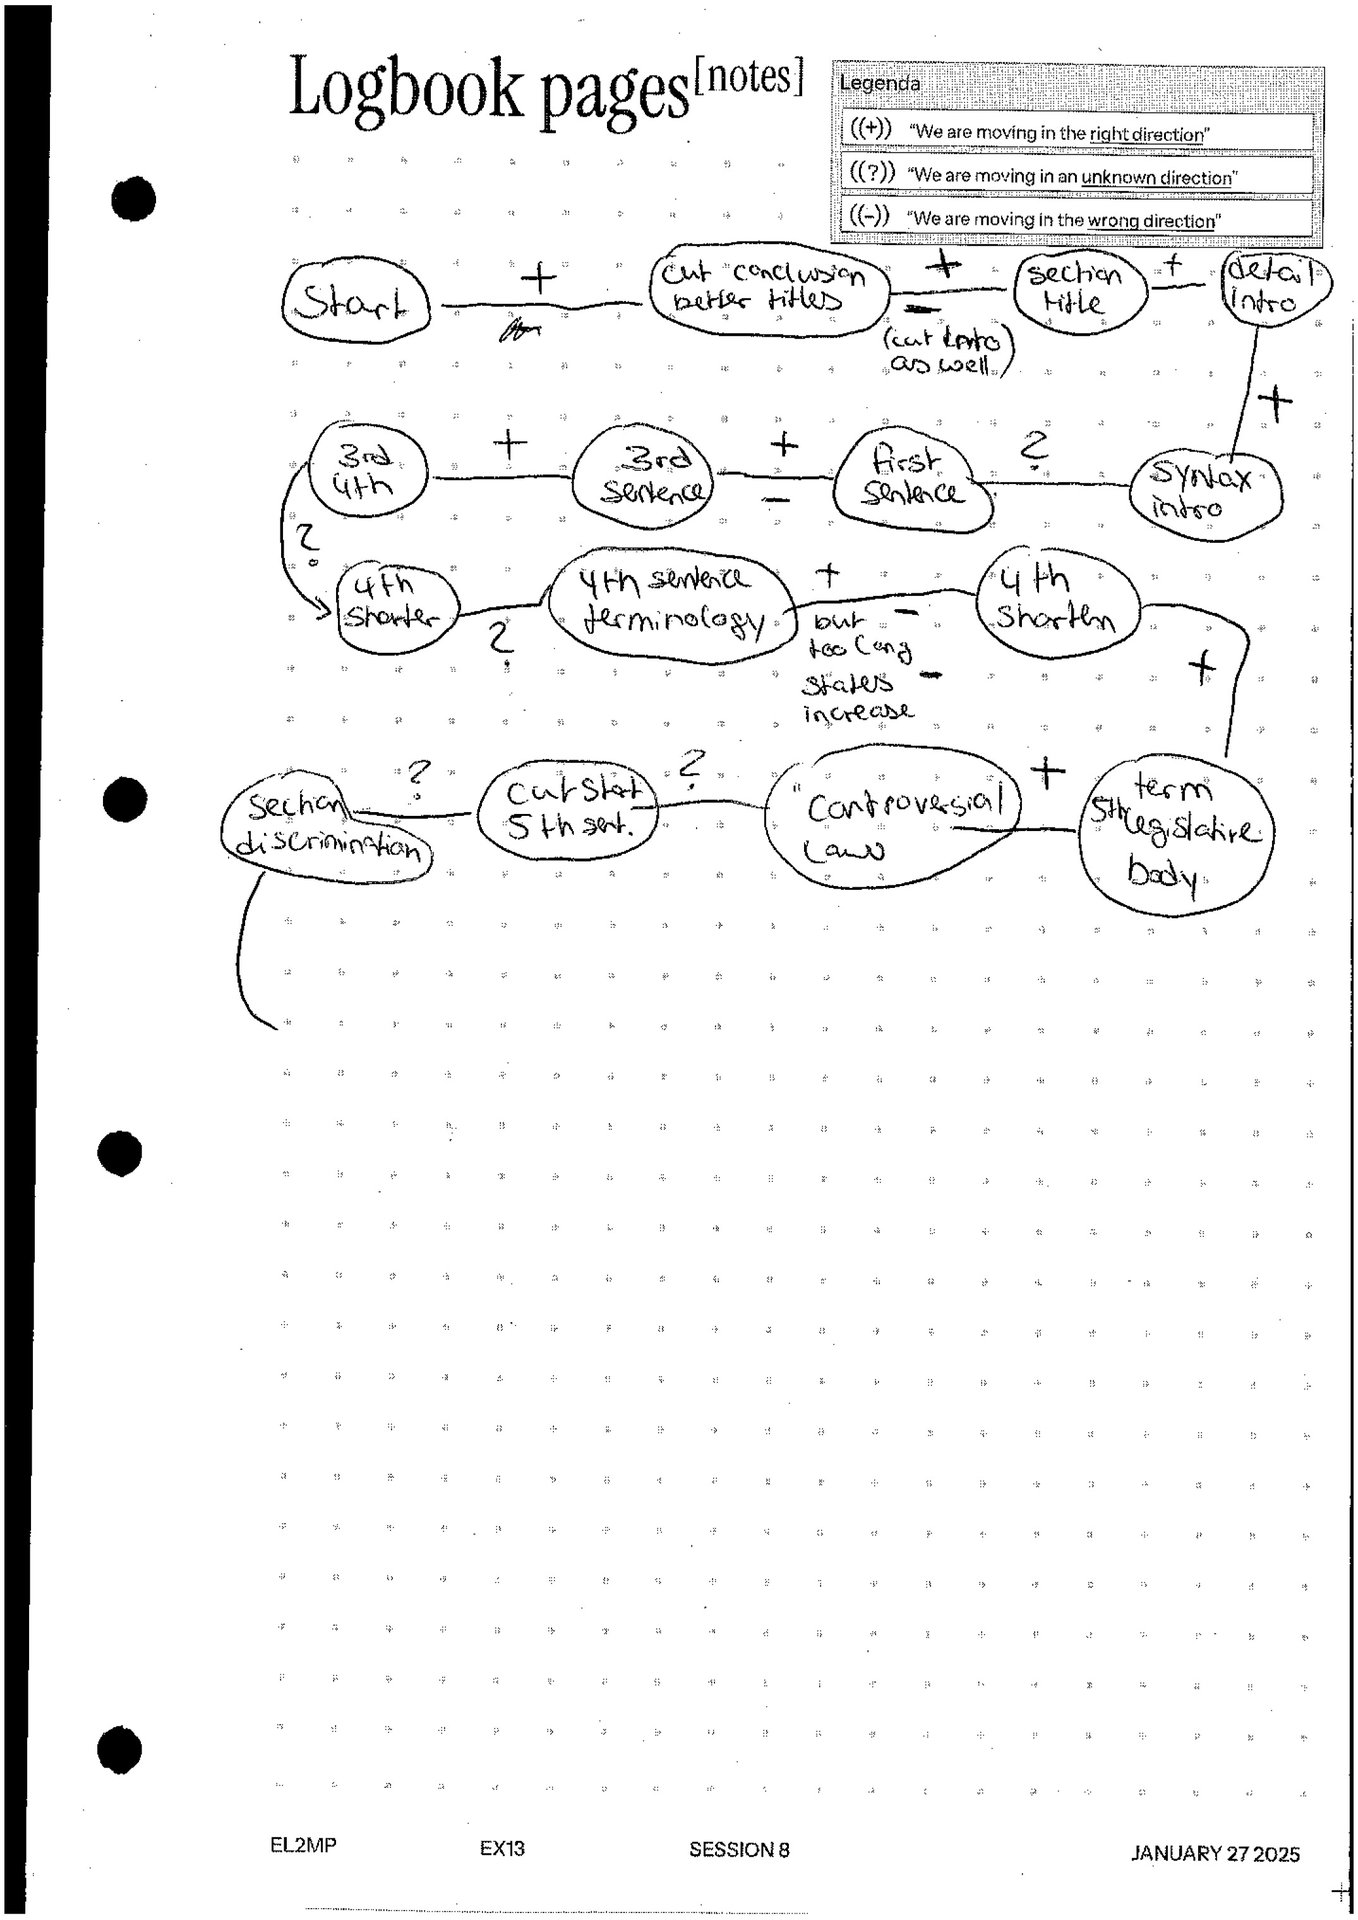 Logbook pages[notes]
Legenda
((+)) "We are moving in the right direction"
((?)) "We are moving in an unknown direction"
((-)) "We are moving in the wrong direction"
Start
+
cut conclusion
better titles
+
-
(cut intro
as well)
section
title
+
detail
intro
+
syntax
intro
?
first
sentence
+
-
3rd
sentence
+
3rd
4th
?
4th
shorter
?
4th sentence
terminology
+
-
but
too long
-
states
increase
4th
shorten
+
term
5th legislative
body
+
"controversial
laws
?
cut start
5th sent.
?
section
discrimination
EL2MP EX13 SESSION 8 JANUARY 27 2025